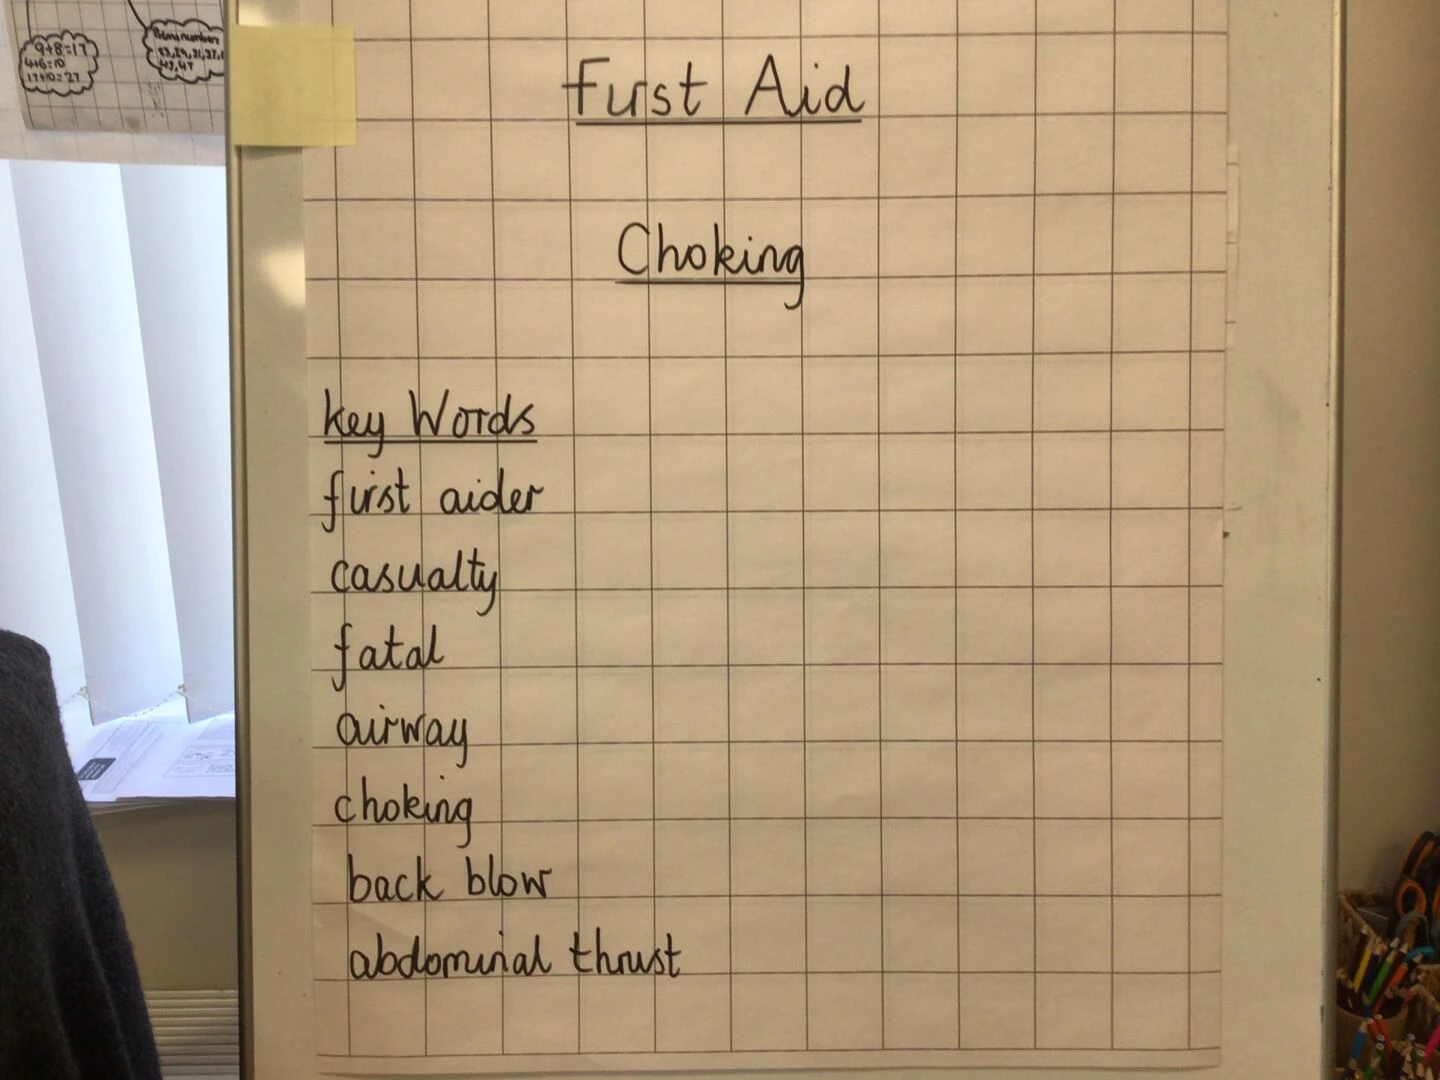 9+8=17
4+6=10
17+10=27
Prime numbers
43,47
First Aid
Choking
Key Words
first aider
casualty
fatal
airway
choking
back blow
abdominal thrust